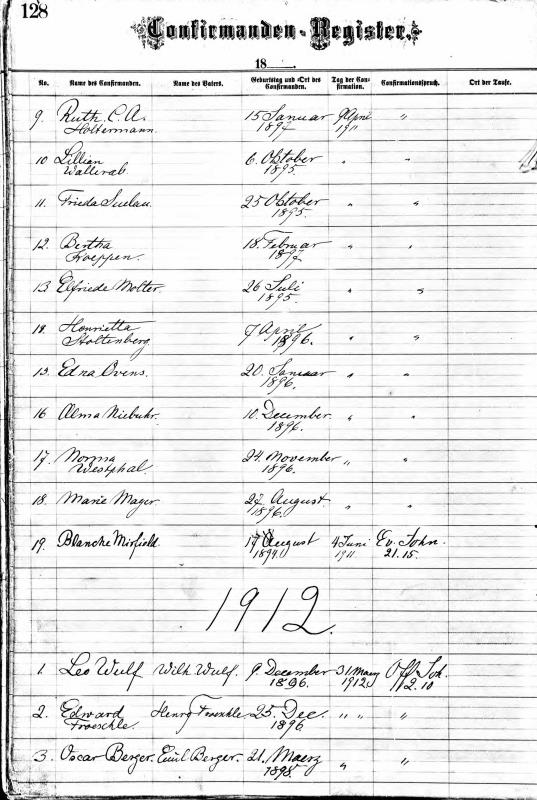 128
Confirmanden-Register.
18
No. Name des Confirmanden. Name des Vaters. Geburtstag und Ort des Confirmanden. Tag der Confirmation. Confirmationsspruch. Ort der Taufe.
9. Ruth C. A. 15 Januar 9 April "
Holtermann. 1897 1911
10 Lillian 6. Oktober " "
Wallerab. 1895.
11. Frieda Suelau. 25 Oktober " "
1895.
12. Bertha 18. Februar " "
Froeppen. 1897
13. Elfriede Molter. 26 Juli " "
1895.
18. Henrietta 7 April " "
Stoltenberg 1896.
15. Edna Ovens. 20. Januar " "
1896.
16 Alma Niebuhr. 10. December " "
1896.
17. Norma 24. November " "
Westphal. 1896.
18. Marie Mayer. 27 August " "
1896.
19. Blanche Mirfield. 17 August 4 Juni Ev. John.
1894. 1911 21. 15.
1912.
1. Leo Wulf Wilh. Wulf. 9 December 31 Maerz Off. Joh.
1896. 1912. 2. 10
2. Edward Henry Froeschle. 25. Dec. " " "
Froeschle. 1896
3. Oscar Berger. Emil Berger. 21. Maerz " "
1898.